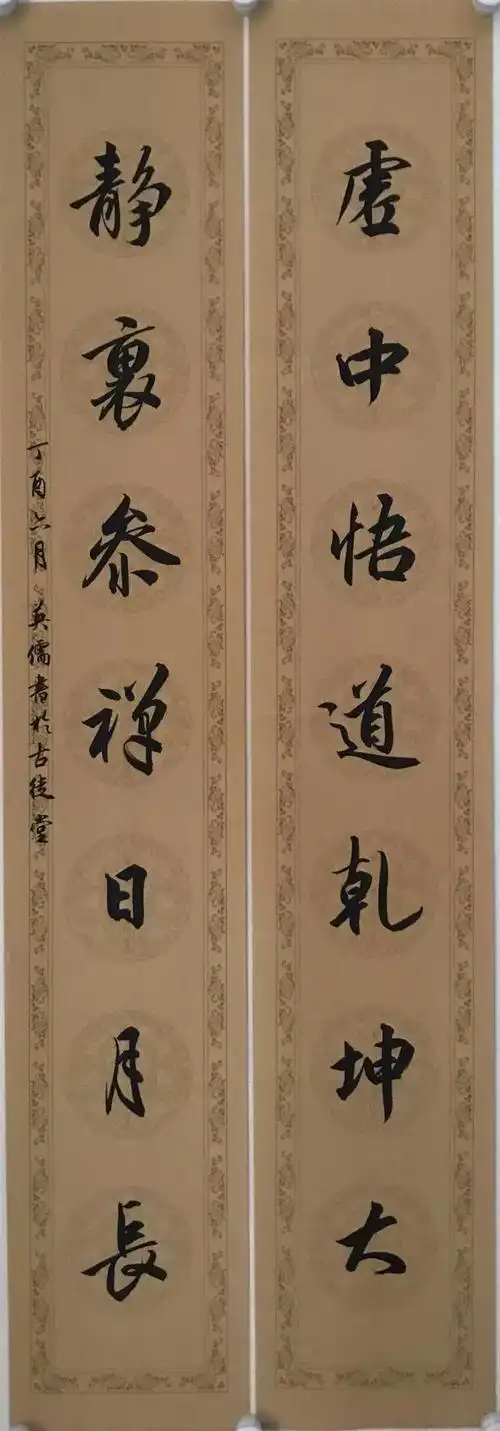 虚中悟道乾坤大
静裏参禅日月長
丁酉六月英儒書於古徒堂